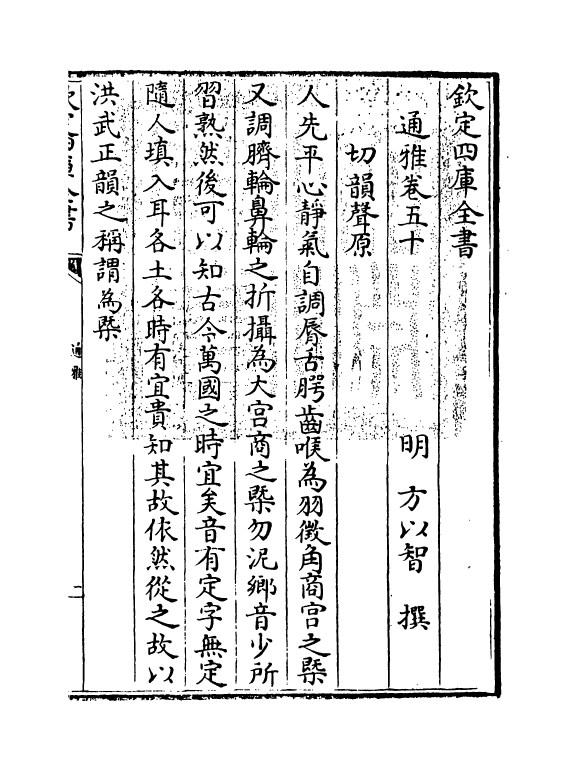 欽定四庫全書
通雅卷五十
明 方以智 撰
切韻聲原
人先平心靜氣自調唇舌腭齒喉為羽徵角商宫之槩
又調臍輪鼻輪之折攝為大宫商之槩勿泥鄉音少所
習熟然後可以知古今萬國之時宜矣音有定字無定
隨人填入耳各土各時有宜貴知其故依然從之故以
洪武正韻之稱謂為槩
通雅